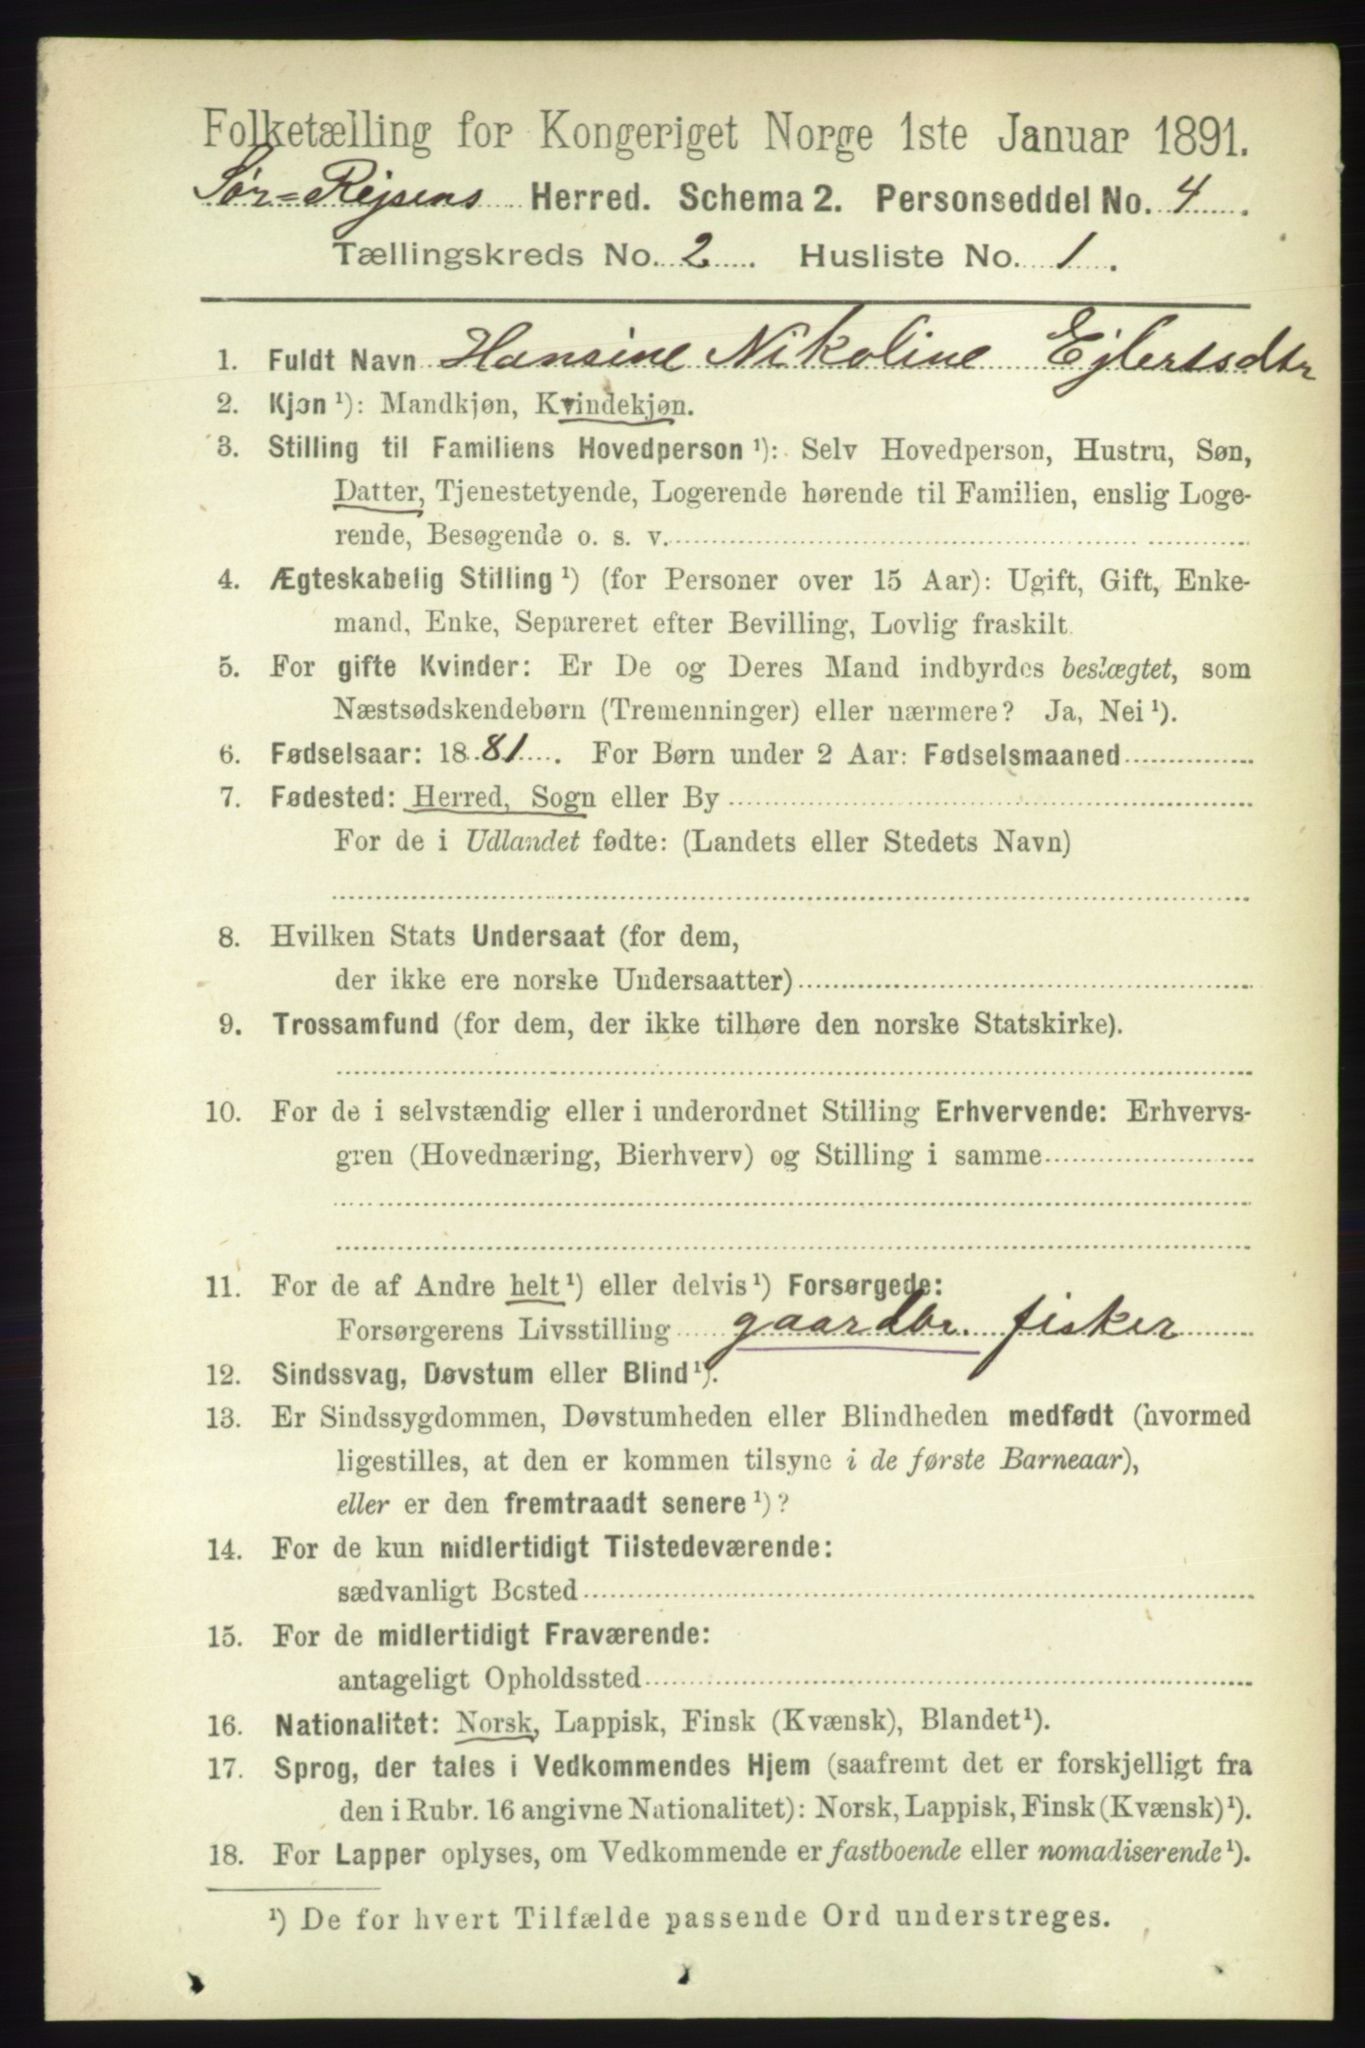 Folketælling for Kongeriget Norge 1ste Januar 1891.
Sør-Rejsens Herred. Schema 2. Personseddel No. 4.
Tællingskreds No. 2. Husliste No. 1.
1. Fuldt Navn Hansine Nikoline Ejlertsdtr
2. Kjøn ¹): Mandkjøn, Kvindekjøn.
3. Stilling til Familiens Hovedperson ¹): Selv Hovedperson, Hustru, Søn,
Datter, Tjenestetyende, Logerende hørende til Familien, enslig Loge-
rende, Besøgende o. s. v.
4. Ægteskabelig Stilling ¹) (for Personer over 15 Aar): Ugift, Gift, Enke-
mand, Enke, Separeret efter Bevilling, Lovlig fraskilt.
5. For gifte Kvinder: Er De og Deres Mand indbyrdes beslægtet, som
Næstsødskendebørn (Tremenninger) eller nærmere? Ja, Nei ¹).
6. Fødselsaar: 1881. For Børn under 2 Aar: Fødselsmaaned
7. Fødested: Herred, Sogn eller By
For de i Udlandet fødte: (Landets eller Stedets Navn)
8. Hvilken Stats Undersaat (for dem,
der ikke ere norske Undersaatter)
9. Trossamfund (for dem, der ikke tilhøre den norske Statskirke).
10. For de i selvstændig eller i underordnet Stilling Erhvervende: Erhvervs-
gren (Hovednæring, Bierhverv) og Stilling i samme
11. For de af Andre helt ¹) eller delvis ¹) Forsørgede:
Forsørgerens Livsstilling gaardbr. fisker
12. Sindssvag, Døvstum eller Blind ¹).
13. Er Sindssygdommen, Døvstumheden eller Blindheden medfødt (hvormed
ligestilles, at den er kommen tilsyne i de første Barneaar),
eller er den fremtraadt senere ¹)?
14. For de kun midlertidigt Tilstedeværende:
sædvanligt Bosted
15. For de midlertidigt Fraværende:
antageligt Opholdssted
16. Nationalitet: Norsk, Lappisk, Finsk (Kvænsk), Blandet ¹).
17. Sprog, der tales i Vedkommendes Hjem (saafremt det er forskjelligt fra
den i Rubr. 16 angivne Nationalitet): Norsk, Lappisk, Finsk (Kvænsk) ¹).
18. For Lapper oplyses, om Vedkommende er fastboende eller nomadiserende ¹).
¹) De for hvert Tilfælde passende Ord understreges.